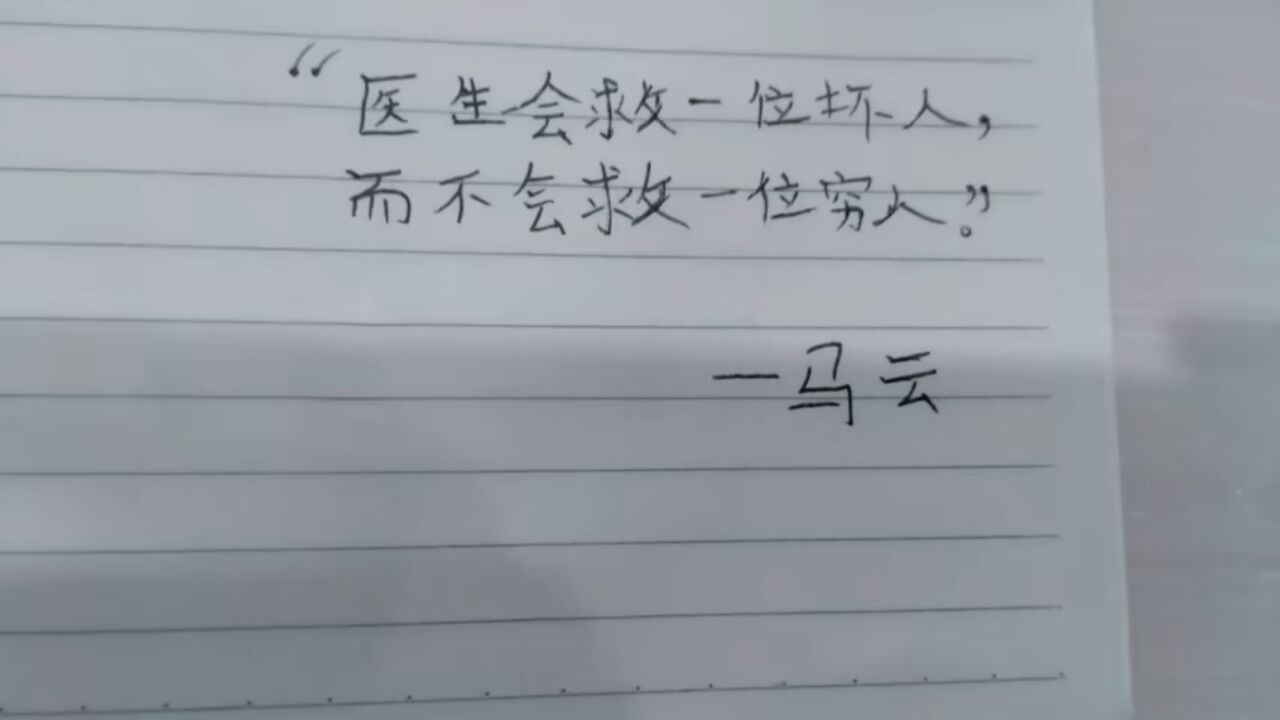 “医生会救一位坏人，
而不会救一位穷人。”
一马云